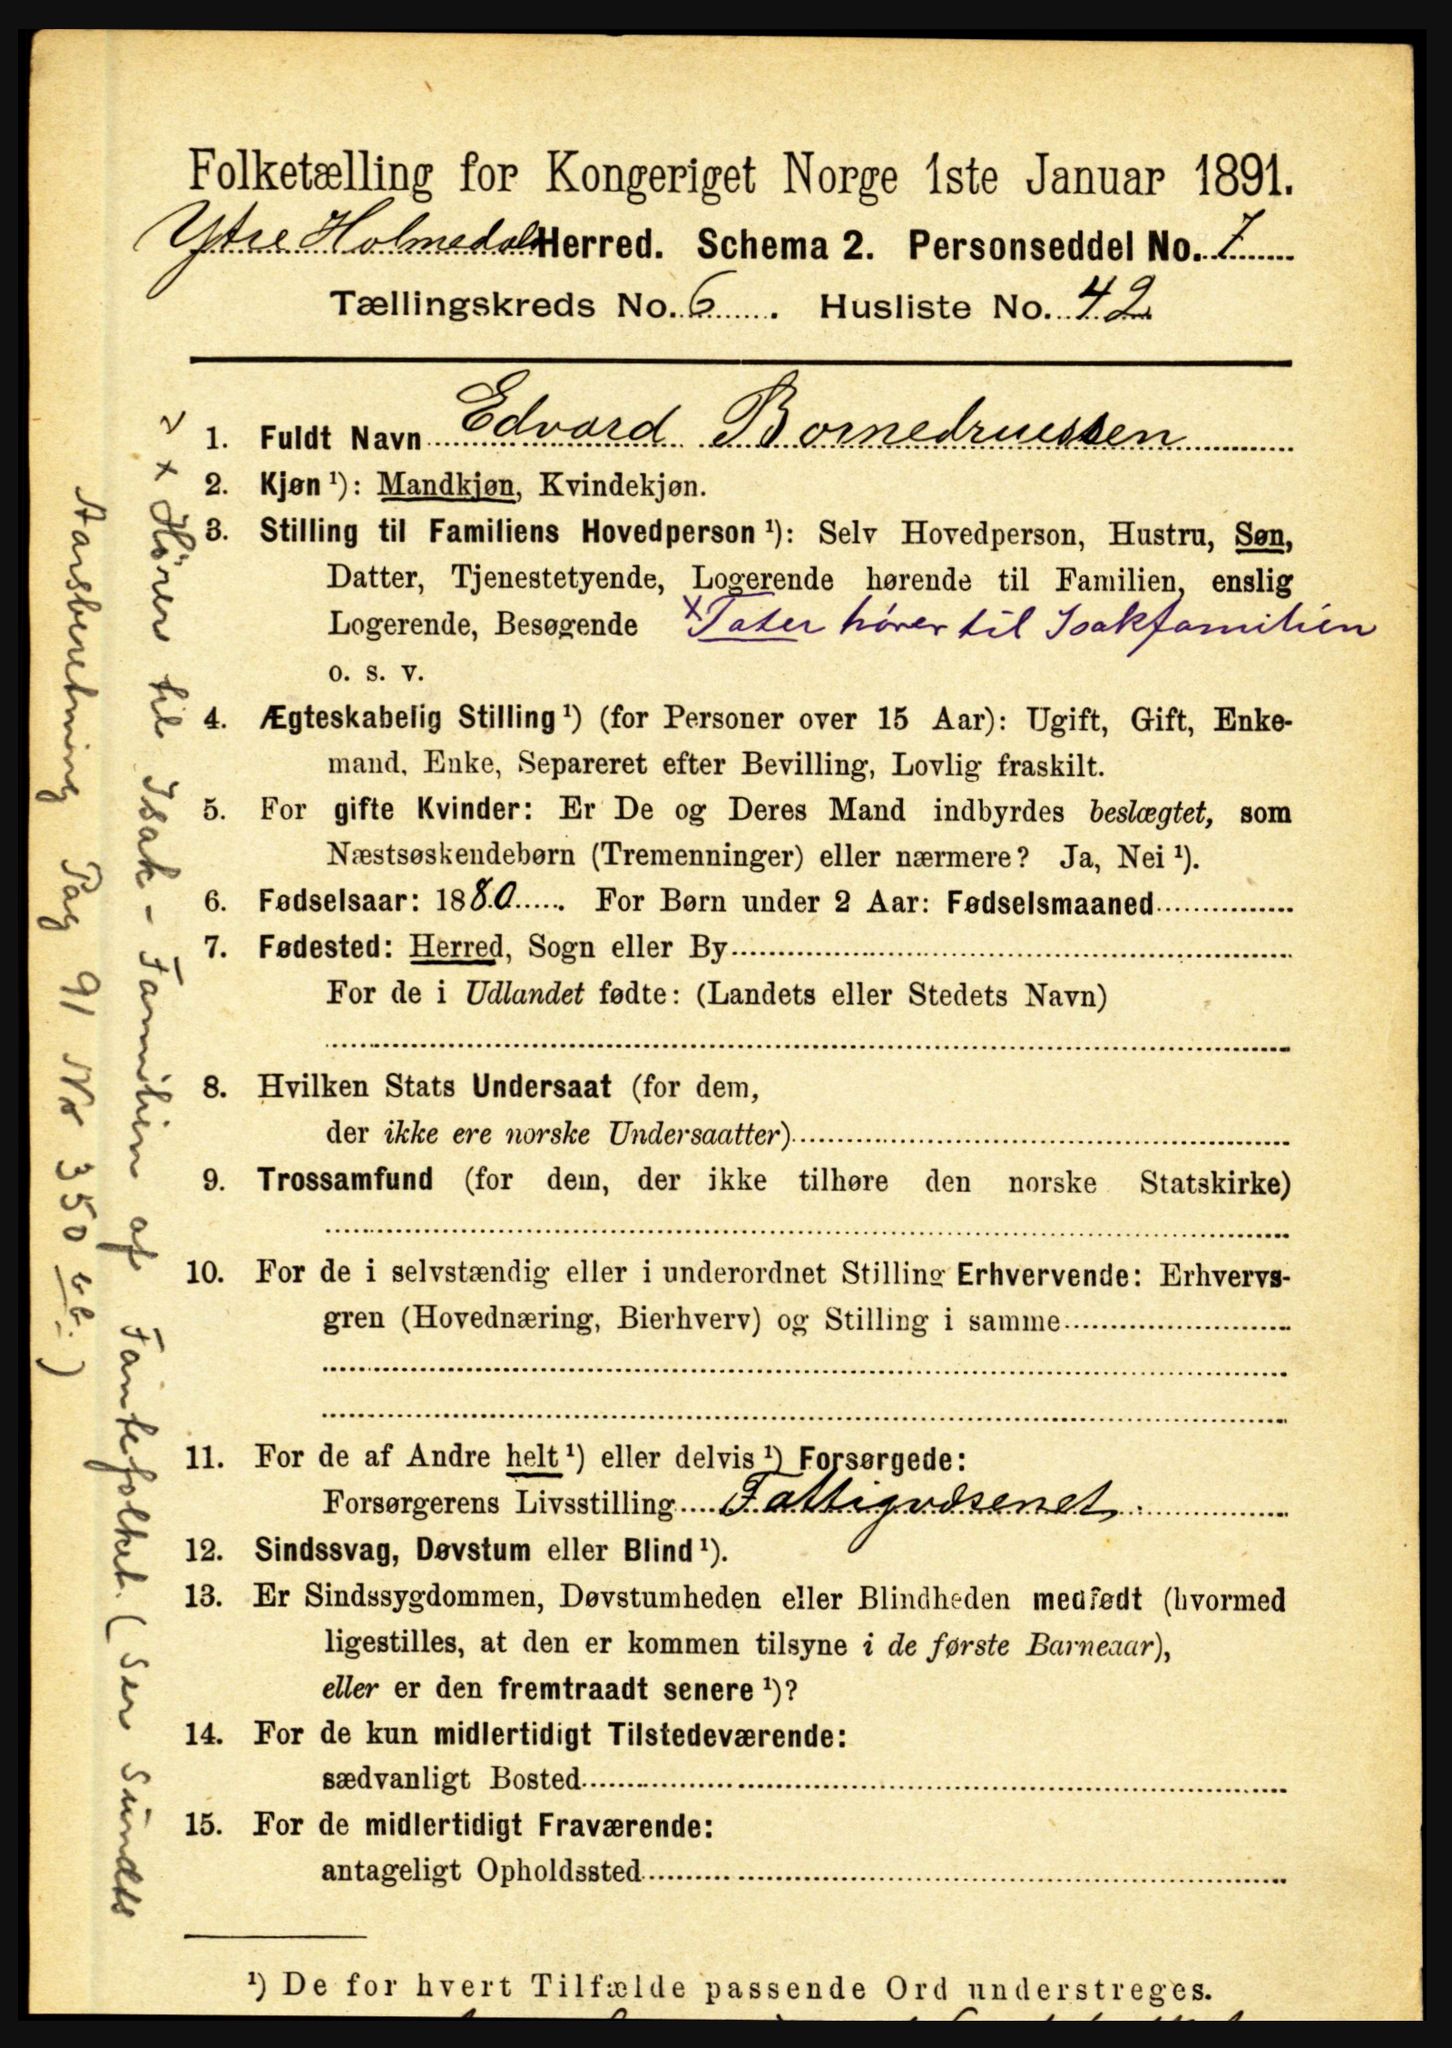 Folketælling for Kongeriget Norge 1ste Januar 1891.
Ytre Holmedals Herred. Schema 2. Personseddel No. 7
Tællingskreds No. 6. Husliste No. 42
1. Fuldt Navn Edvard
2. Kjøn ¹): Mandkjøn, Kvindekjøn.
3. Stilling til Familiens Hovedperson ¹): Selv Hovedperson, Hustru, Søn,
Datter, Tjenestetyende, Logerende hørende til Familien, enslig
Logerende, Besøgende x Tater hører til Isakfamilien
o. s. v.
4. Ægteskabelig Stilling ¹) (for Personer over 15 Aar): Ugift, Gift, Enke-
mand, Enke, Separeret efter Bevilling, Lovlig fraskilt.
5. For gifte Kvinder: Er De og Deres Mand indbyrdes beslægtet, som
Næstsøskendebørn (Tremenninger) eller nærmere? Ja, Nei ¹).
6. Fødselsaar: 1880. For Børn under 2 Aar: Fødselsmaaned
7. Fødested: Herred, Sogn eller By
For de i Udlandet fødte: (Landets eller Stedets Navn)
8. Hvilken Stats Undersaat (for dem,
der ikke ere norske Undersaatter)
9. Trossamfund (for dem, der ikke tilhøre den norske Statskirke)
10. For de i selvstændig eller i underordnet Stilling Erhvervende: Erhvervs-
gren (Hovednæring, Bierhverv) og Stilling i samme
11. For de af Andre helt ¹) eller delvis ¹) Forsørgede:
Forsørgerens Livsstilling Fattigvæsenet.
12. Sindssvag, Døvstum eller Blind ¹).
13. Er Sindssygdommen, Døvstumheden eller Blindheden medfødt (hvormed
ligestilles, at den er kommen tilsyne i de første Barneaar),
eller er den fremtraadt senere ¹)?
14. For de kun midlertidigt Tilstedeværende:
sædvanligt Bosted
15. For de midlertidigt Fraværende:
antageligt Opholdssted
¹) De for hvert Tilfælde passende Ord understreges.
x Hører til Isak-Familien af Fantefolket. (Ser Sundts
Aarsberetning Pag 91 No 350 )